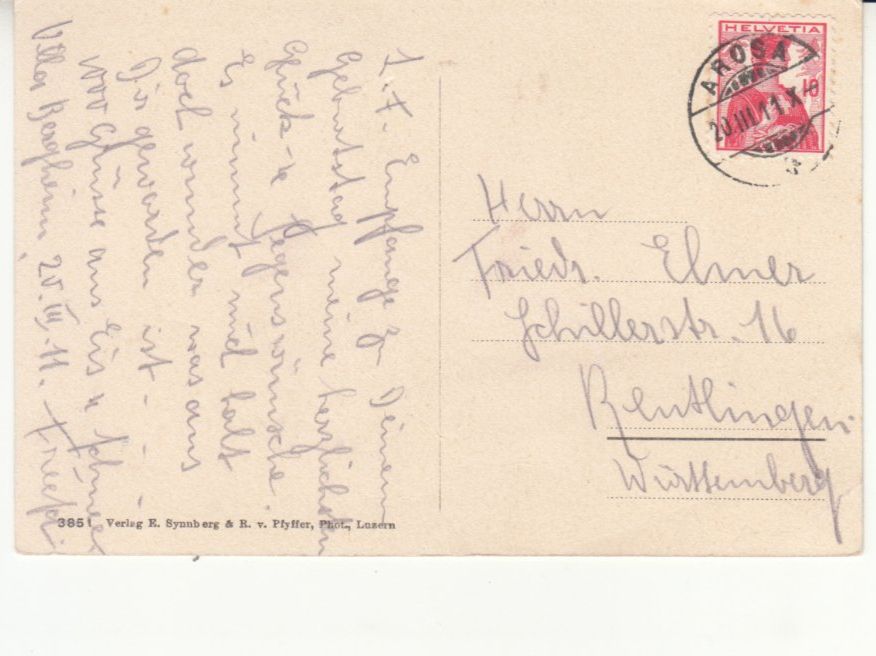 HELVETIA
10
AROSA
20.III.11.X
L. F. Empfange z. Deinem
Geburtstag meine herzlichsten
Glück- u Segenswünsche.
Es nimmt mich halt
doch wunder was aus
Dir geworden ist - - -
1000 Grüsse aus Eis u Schnee
Villa Bergheim 20.III.11. Friedr
Herrn
Friedr. Elmer
Schillerstr. 16
Reutlingen.
Württemberg
3851 Verlag E. Synnberg & R. v. Pfyffer, Phot., Luzern